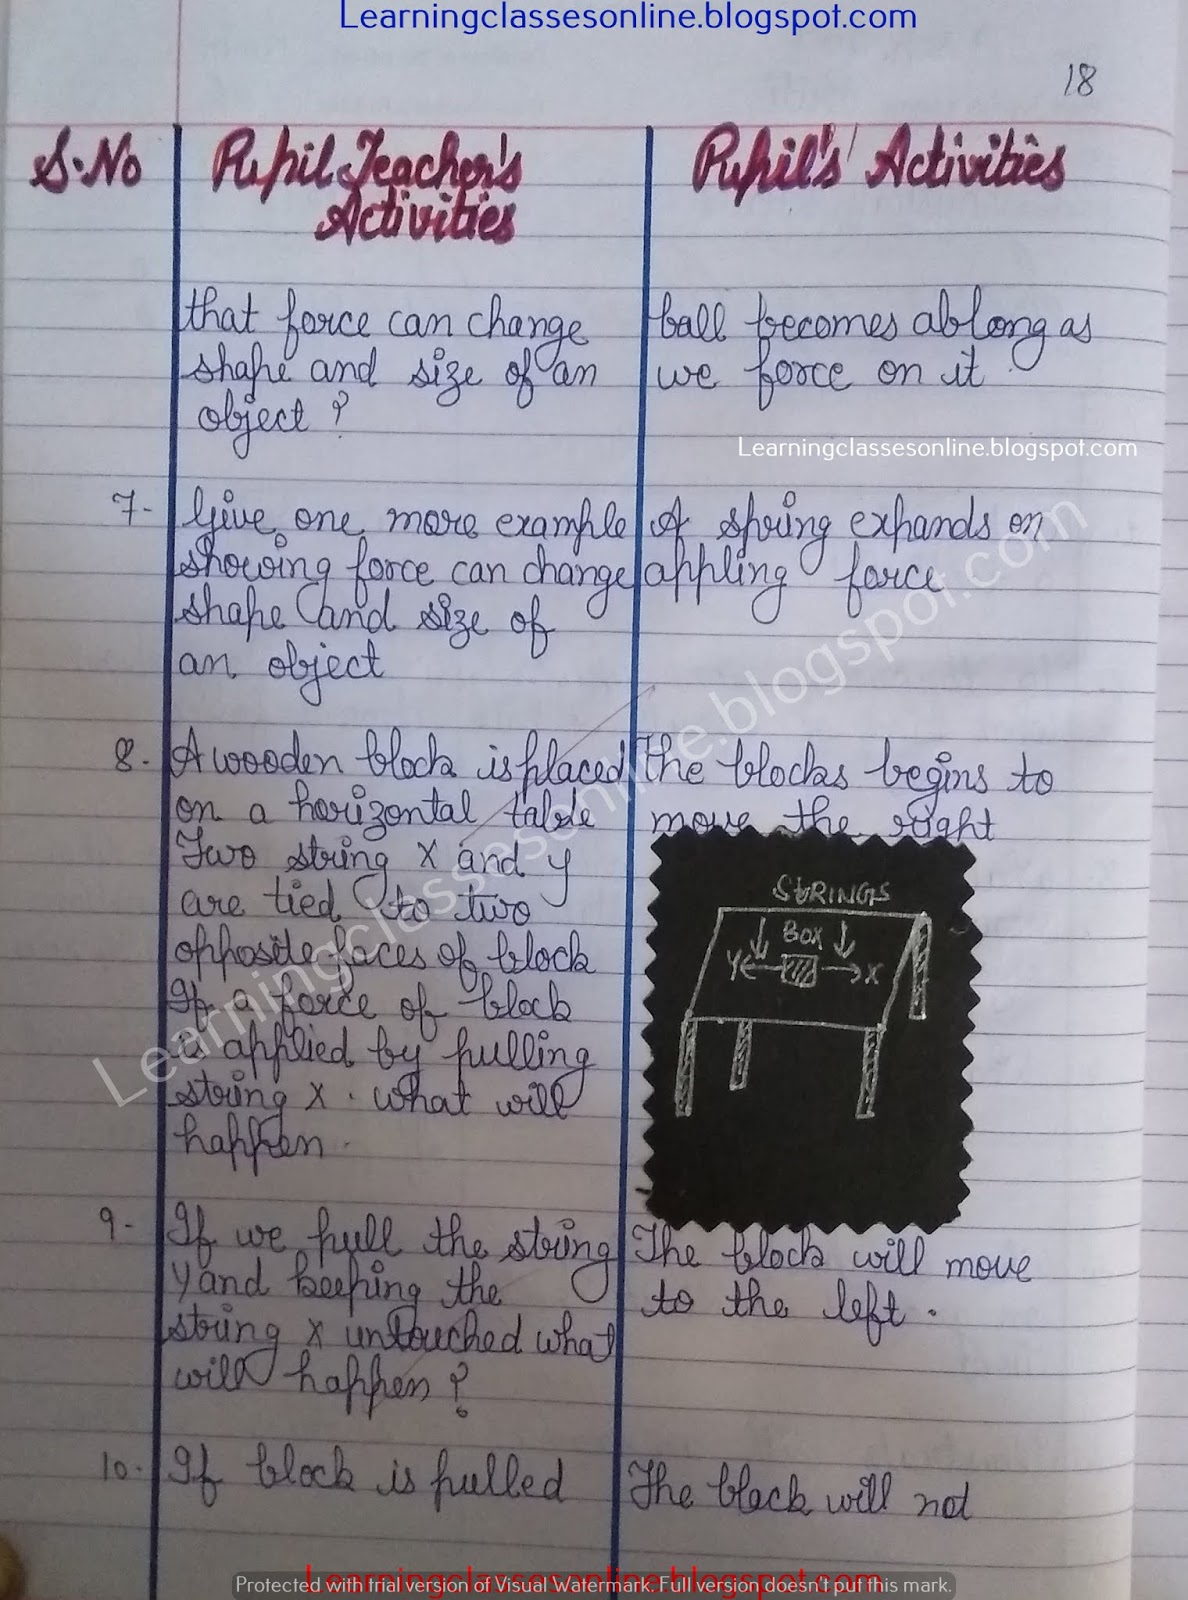 Learningclassesonline.blogspot.com
18
S.No
Pupil Teacher's
Activities
Pupil's Activities
that force can change
shape and size of an
object ?
ball becomes ablong as
we force on it
Learningclassesonline.blogspot.com
7- Give one more example
showing force can change
shape and size of
an object
A spring expands on
appling force
8- A wooden block is placed
on a horizontal table
Two string X and y
are tied to two
opposite faces of block
If a force of block
is applied by pulling
string X . what will
happen .
The blocks begins to
move the right
STRINGS
BOX
Y
X
9- If we pull the string
Y and keeping the
string X untouched what
will happen ?
The block will move
to the left .
10- If block is pulled
The block will not
Learningclassesonline.blogspot.com
Learningclassesonline.blogspot.com
Protected with trial version of Visual Watermark. Full version doesn't put this mark.